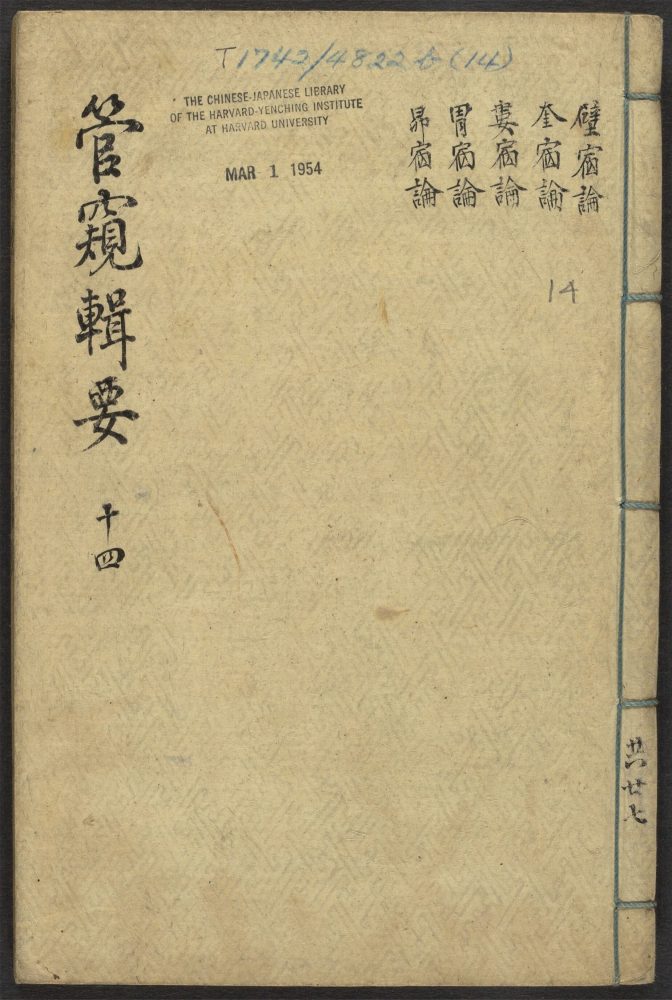 T1742/4822b(14)
THE CHINESE-JAPANESE LIBRARY
OF THE HARVARD-YENCHING INSTITUTE
AT HARVARD UNIVERSITY
MAR 1 1954
壁宿論
奎宿論
婁宿論
胃宿論
昴宿論
14
管窺輯要 十四
共廿七